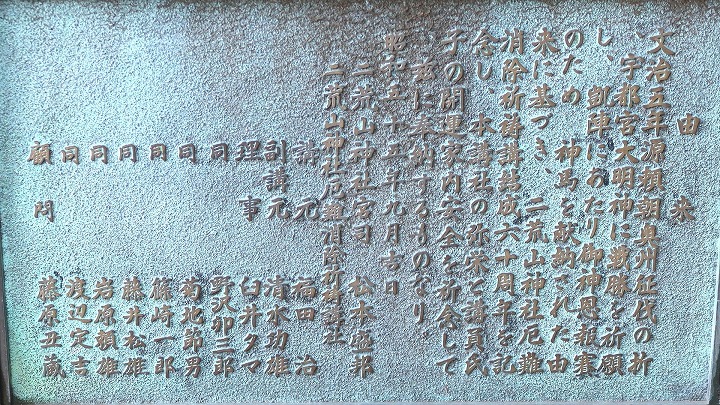 由来
文治五年源頼朝奥州征伐の折
、宇都宮大明神に戦勝を祈願
し、凱陣にあたり御神恩報賽
のため 神馬を献納された由
来に基づき、二荒山神社厄難
消除祈祷講結成六十周年を記
念し、本講社の弥栄と講員氏
子の開運家内安全を祈念して
、茲に奉納するものなり。
昭和五十五年九月吉日
二荒山神社宮司 松本 邦
二荒山神社厄難消除祈祷講社
講元 福田 治
副講元 清水功雄
理事 臼井タマ
同 野沢卯三郎
同 菊地節男
同 篠崎一郎
同 藤井松雄
同 岩原頼雄
同 渡辺定吉
顧問 藤原丑蔵